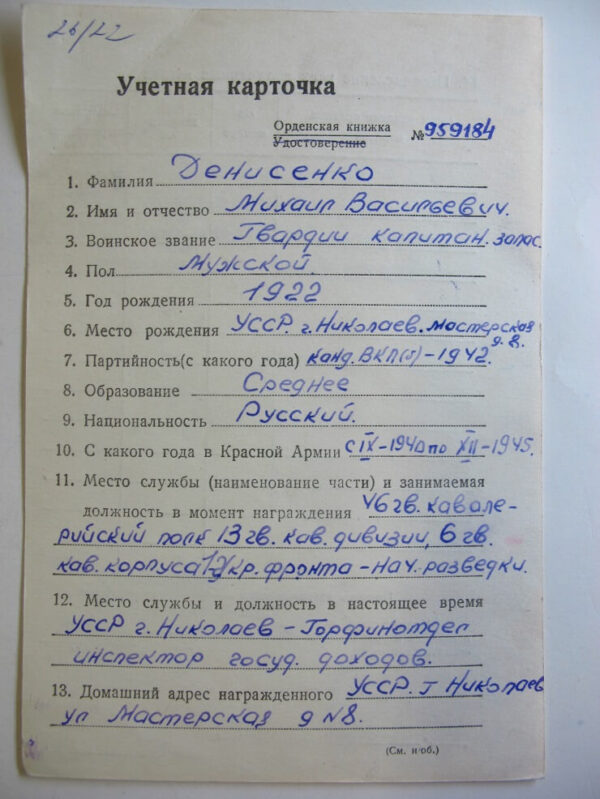 26/22
Учетная карточка
Орденская книжка
Удостоверение № 959184
1. Фамилия Денисенко
2. Имя и отчество Михаил Васильевич.
3. Воинское звание Гвардии капитан. запас.
4. Пол Мужской.
5. Год рождения 1922
6. Место рождения УССР. г. Николаев. Мастерская
д. 8.
7. Партийность(с какого года) канд. ВКП(б)-1942.
8. Образование Среднее
9. Национальность Русский.
10. С какого года в Красной Армии с IX-1940 по XII-1945.
11. Место службы (наименование части) и занимаемая
должность в момент награждения 46 гв. Кавале-
рийский полк 13 гв. кав. дивизии, 6 гв.
кав. корпуса 1 Укр. фронта - Нач. разведки.
12. Место службы и должность в настоящее время
УССР г. Николаев - Горфинотдел
инспектор госуд. доходов.
13. Домашний адрес награжденного УССР. г Николаев
ул Мастерская д №8.
(См. н/об.)